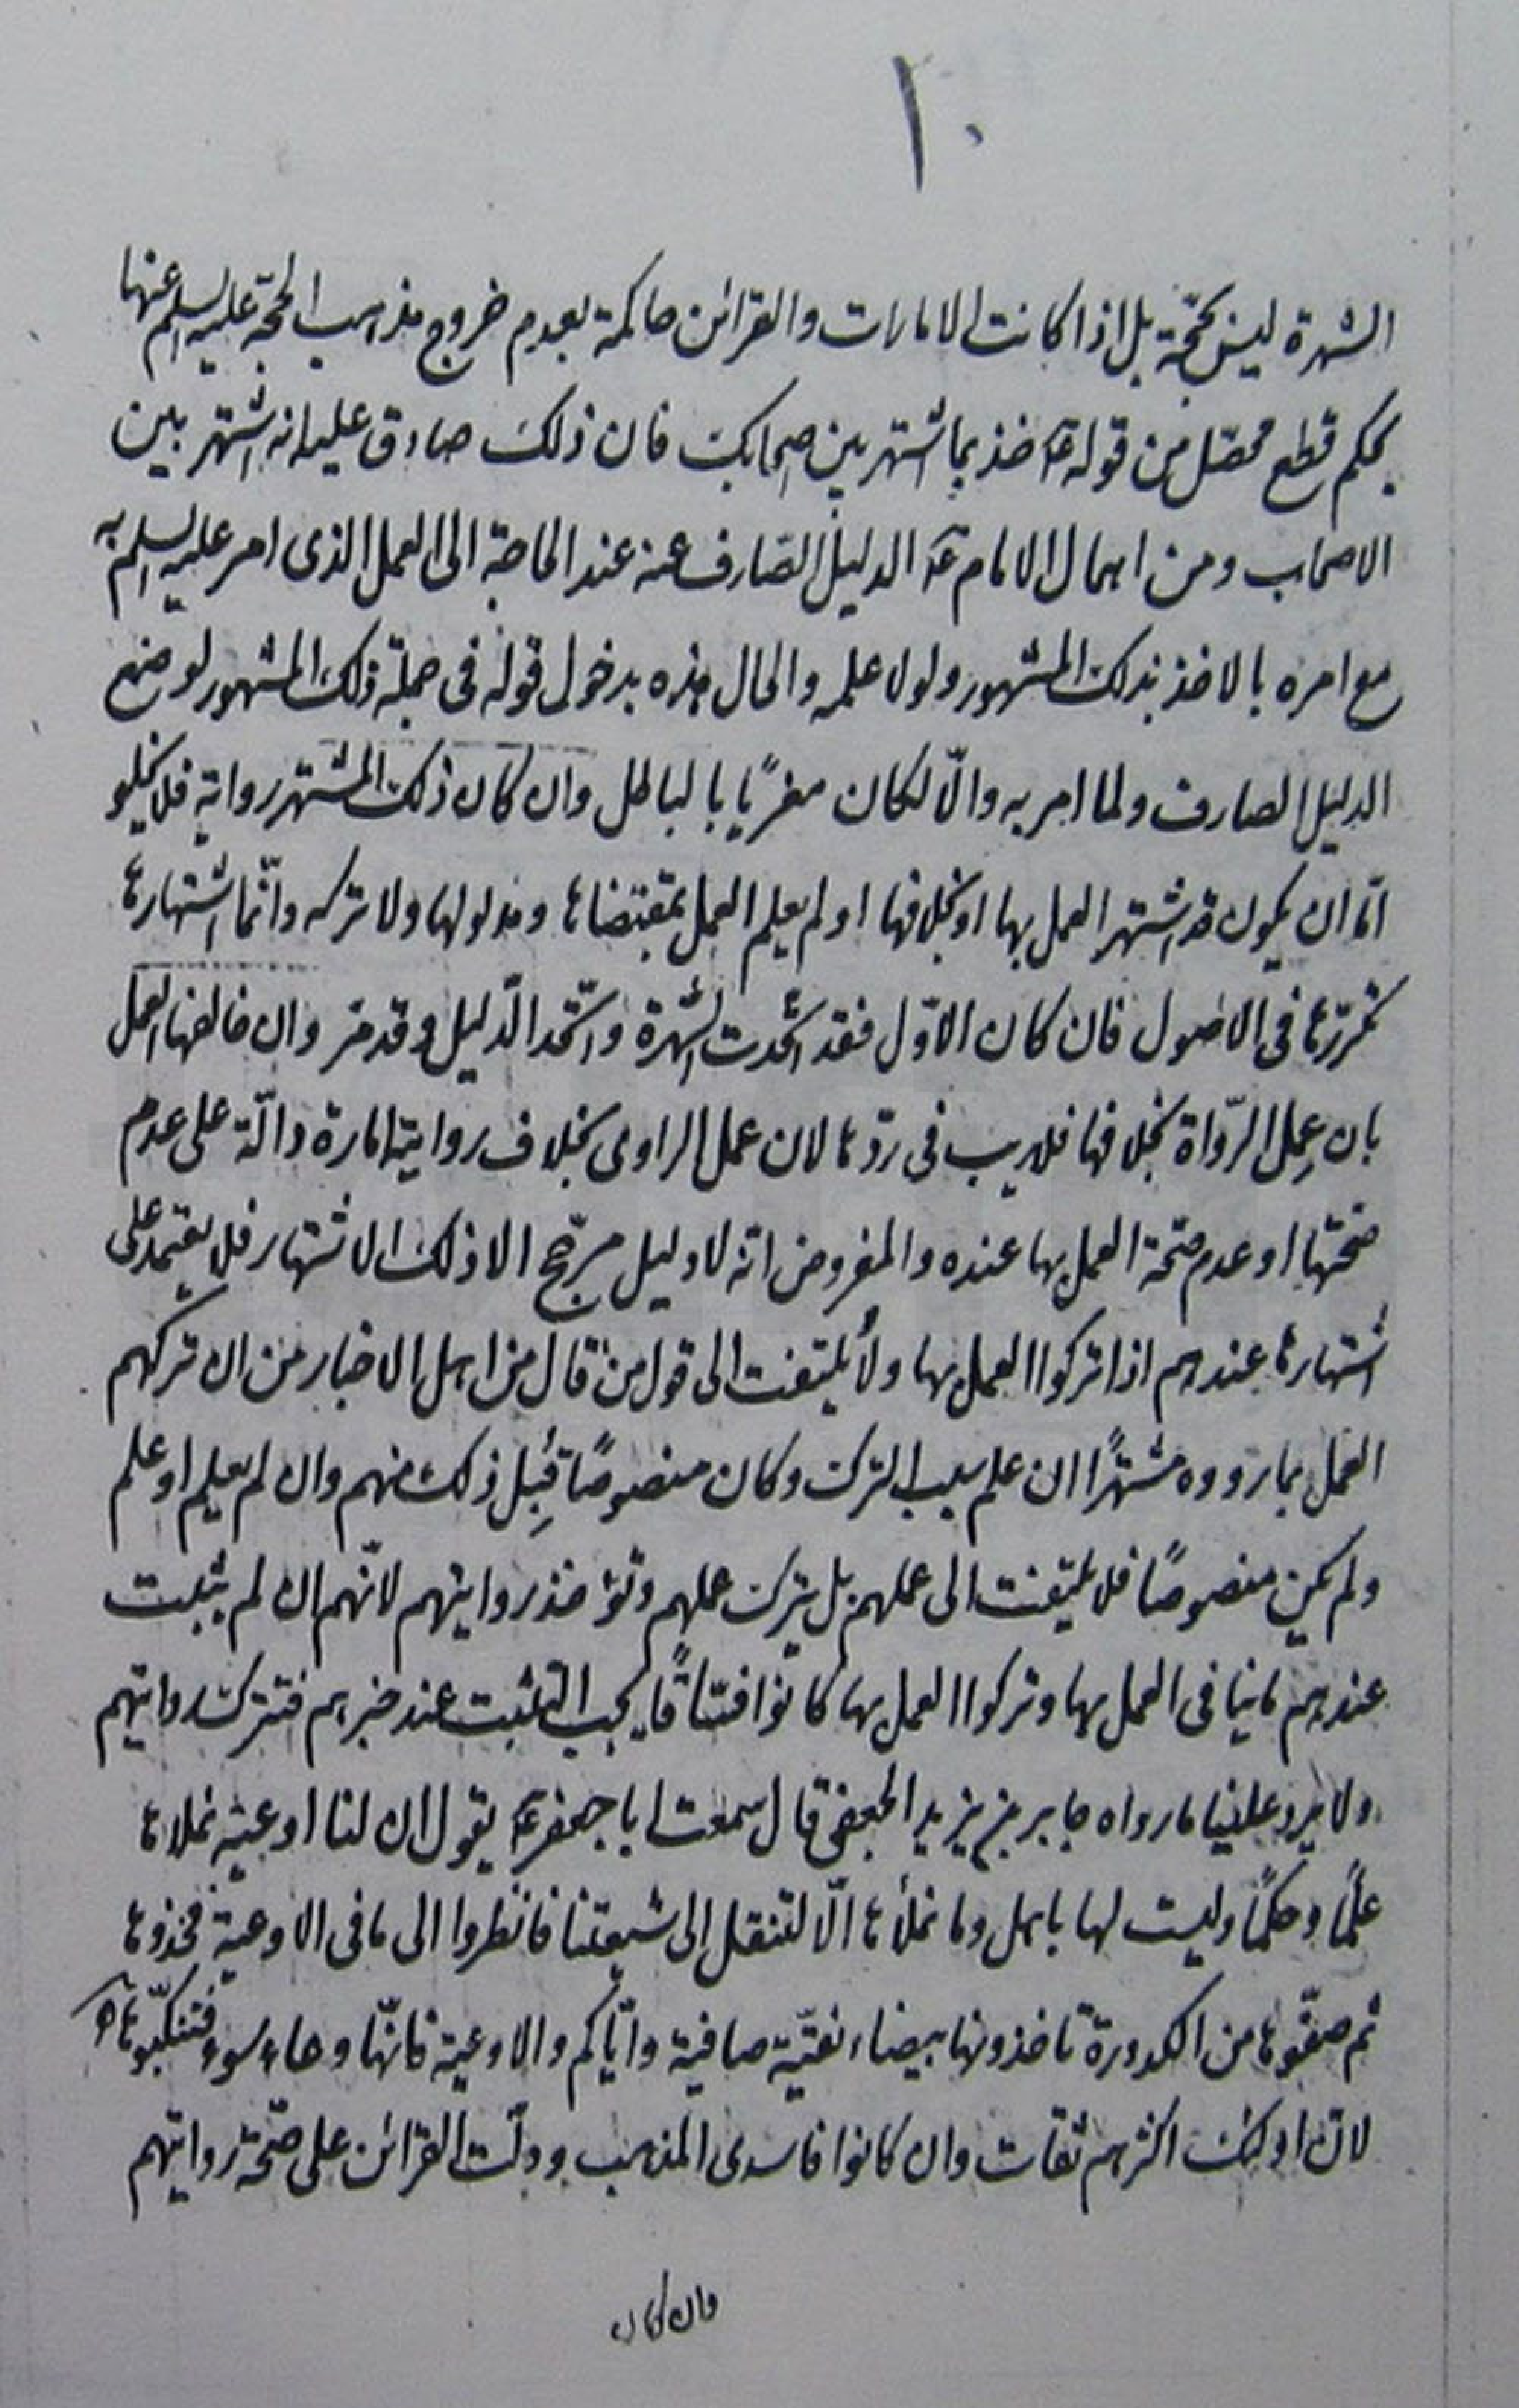 ١٠
الشهرة ليس بحجّة بل اذا كانت الامارات والقرائن حاكمة بعدم خروج مذهب الحجّة عليه السلم عنها
بحكم قطع محصّل من قوله ع خذ بما اشتهر بين اصحابك فان ذلك صادق عليه انه اشتهر بين
الاصحاب ومن اهمال الامام ع الدليل الصّارف عنه عند الحاجة الى العمل الذى امر عليه السلم به
مع امره بالاخذ بذلك المشهور ولولا علمه والحال هذه بدخول قوله فى جملة ذلك المشهور لوضع
الدليل الصارف ولما امر به والّا لكان مغريًا بالباطل وان كان ذلك المشتهر رواية فلا يخلو
امّا ان يكون قد اشتهر العمل بها او بخلافها او لم يعلم العمل بمقتضاها ومدلولها ولا تركه وانّما اشتهارها
تكررّها فى الاصول فان كان الاوّل فقد اتّحدت الشهرة واتّحد الدّليل وقد مرّ وان خالفها العمل
بان عمل الرّواة بخلافها فلا ريب فى ردّها لان عمل الراوى بخلاف روايته امارة دالّة على عدم
صحّتها او عدم صحّة العمل بها عنده والمفروض انّه لا دليل مرجّح الا ذلك الاشتهار فلا يعتمد على
اشتهارها عندهم اذا تركوا العمل بها ولا يلتفت الى قول من قال من اهل الاخبار من ان تركهم
العمل بما رووه مشتهرًا ان علم سبب الترك وكان منصوصًا قُبِل ذلك منهم وان لم يعلم او علم
ولم يكن منصوصًا فلا يلتفت الى عملهم بل يترك عملهم وتؤخذ روايتهم لانّهم ان لم يثبت
عندهم مانيا فى العمل بها وتركوا العمل بها كانوا فسّاقًا يجب التثبت عند خبرهم فتترك روايتهم
ولا يرد علينا ما رواه جابر بن يزيد الجعفى قال سمعت ابا جعفر ع يقول ان لنا اوعية نملاها
علمًا وحكمًا وليست لها باهل وما نملأها الّا لتنقل الى شيعتنا فانظروا الى ما فى الاوعية فخذوها
ثم صفّوها من الكدورة تاخذونها بيضاء نقيّة صافية وايّاكم والاوعية فانّها وعاء سوء فتنكّبوها ه
لان اولئك اكثرهم ثقات وان كانوا فاسدى المذهب ودلّت القرائن على صحّة روايتهم
وان كان